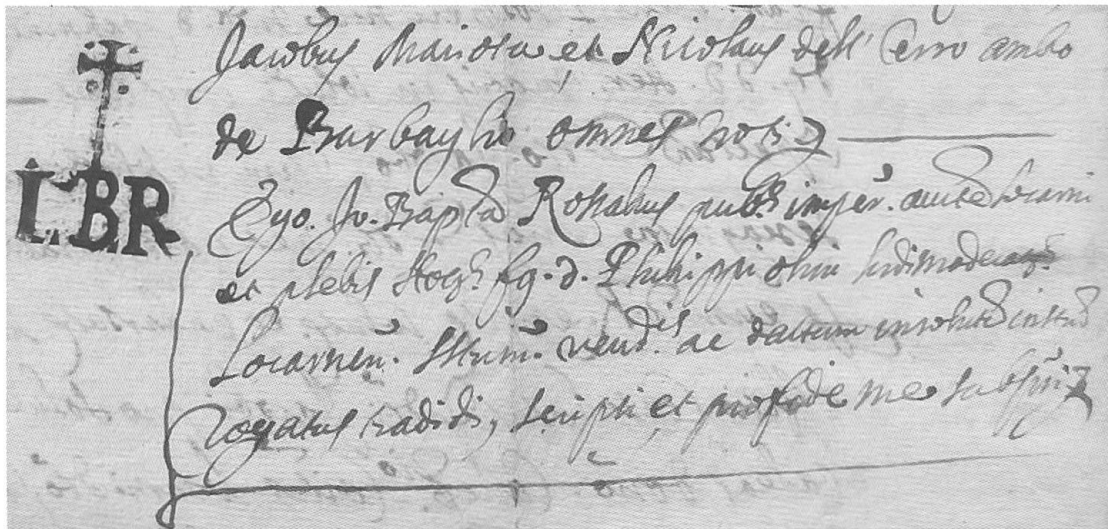 Jacobus Mariota et Nicolaus dell' Cerro ambo
de Burbaglio omnes noti
I.B.R
Ego. Jo. Bapta Rosalius pubs imper. aucte Locarni
et plebis fq. d. Philippi olim
Locarnen. Instrum. vend.is ac datum insolutum
rogatus tradidi, scripsi et pro fide me subscripsi